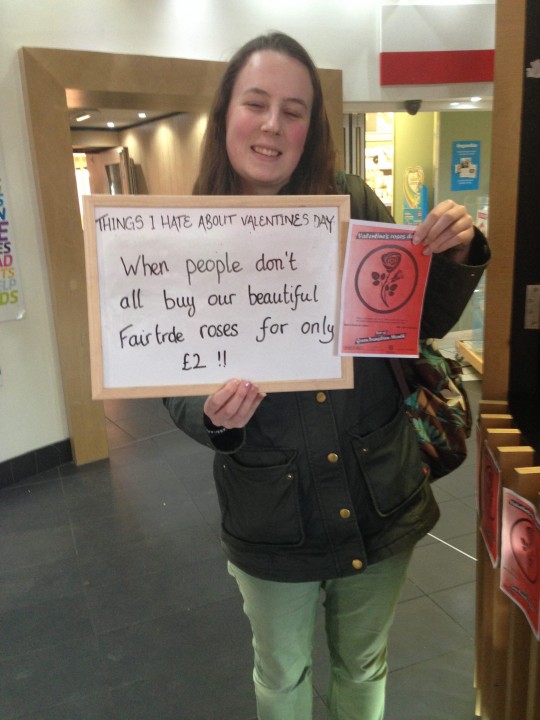 THINGS I HATE ABOUT VALENTINES DAY
When people don't
all buy our beautiful
Fairtrde roses for only
£2 !!
Valentine's roses